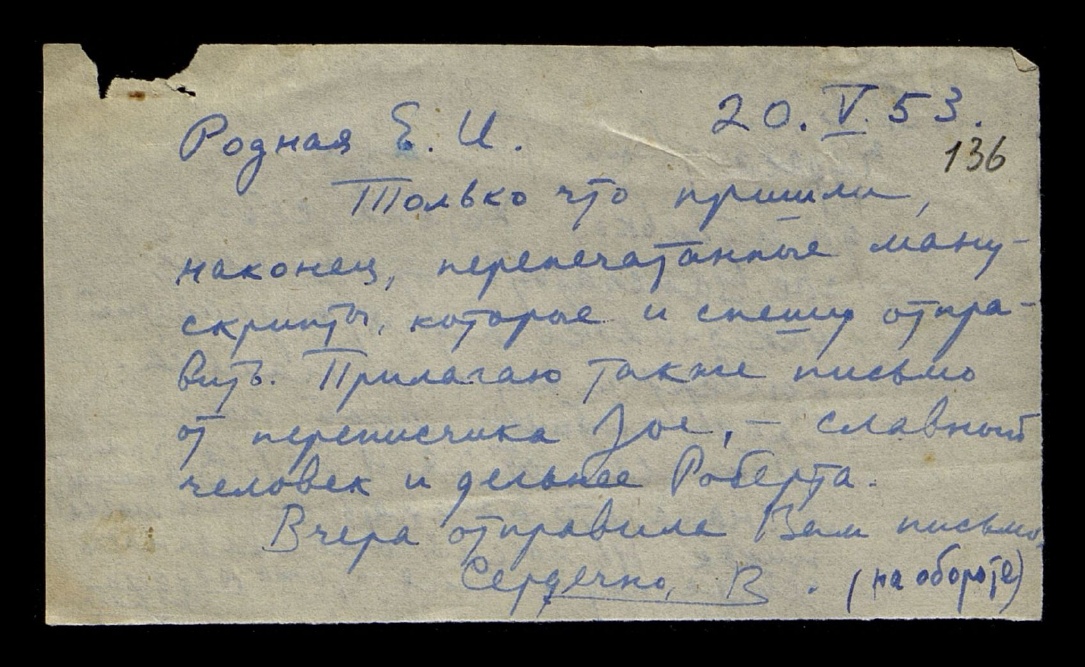 20.V.53.
Родная Е. И.
136
Только что пришли,
наконец, перепечатанные ману-
скрипты, которые и спешу отпра-
вить. Прилагаю также письмо
от переписчика Joe, – славный
человек и дельнее Роберта.
Вчера отправила Вам письмо.
Сердечно, В. (на обороте)